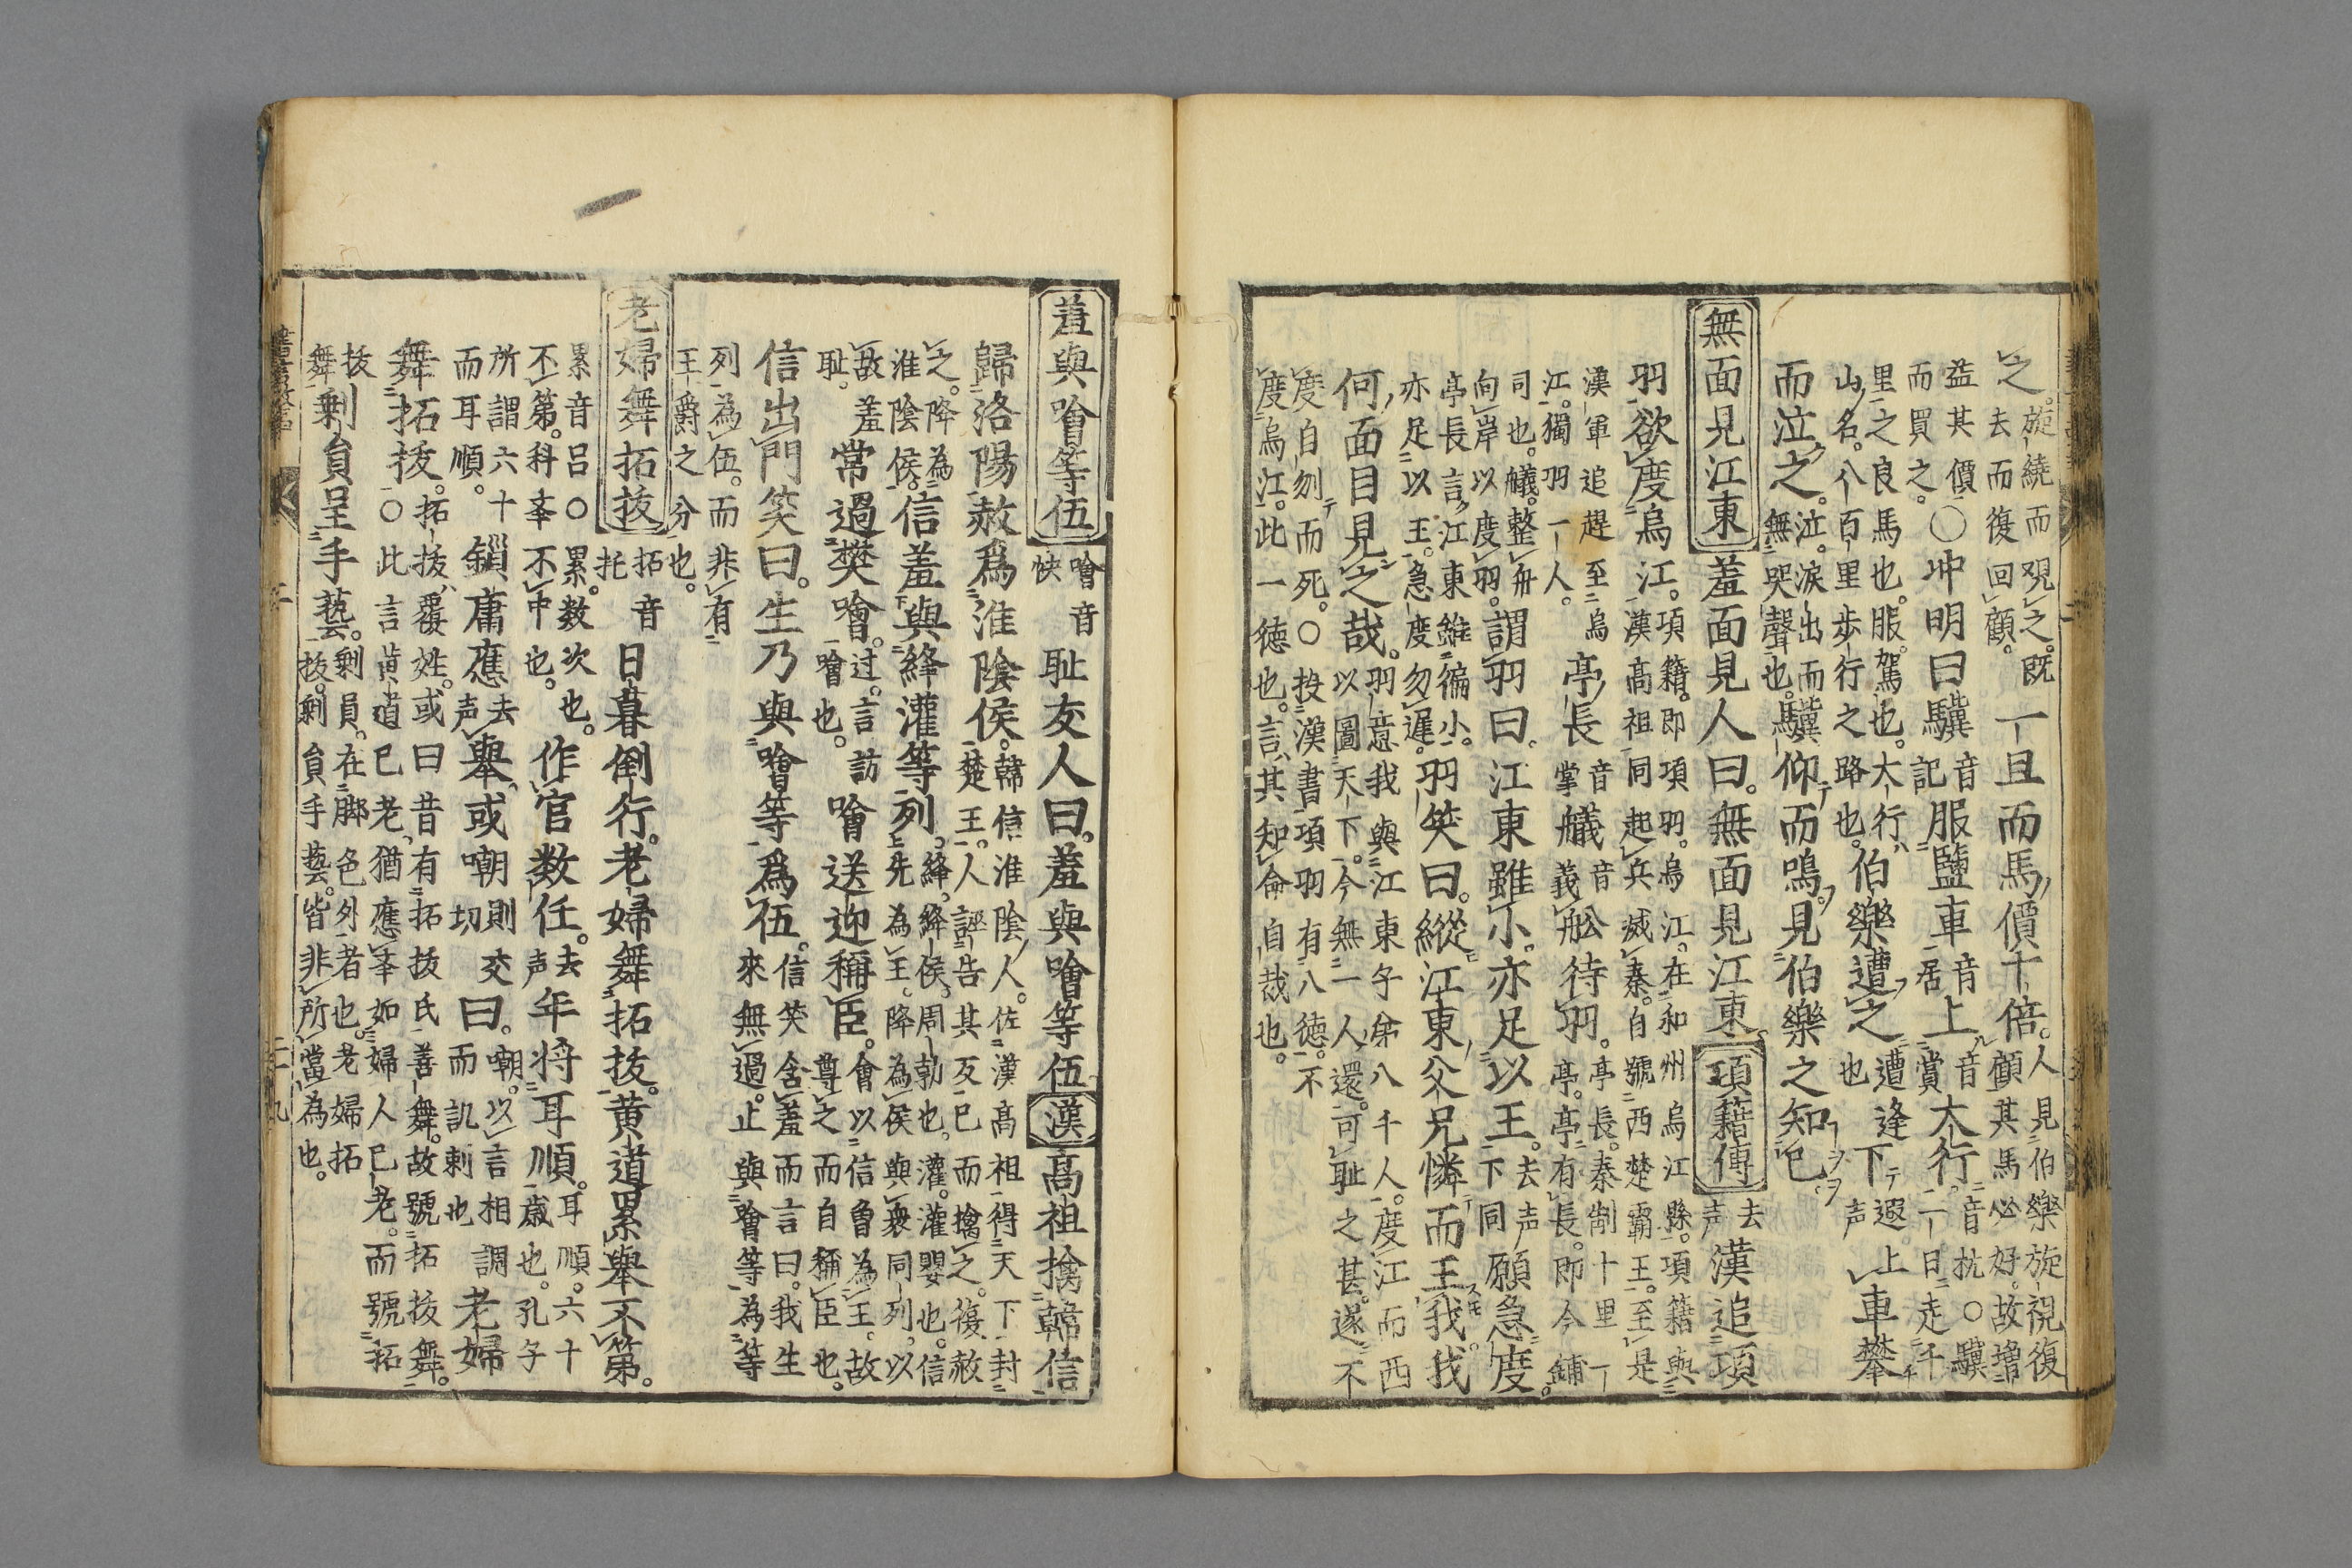 之。旋繞而視之。既去而復回顧。一旦而馬價十倍。人見伯樂旋視復顧其馬必好。故増
益其價而買之。〇冲明曰驥音記服鹽車音居上音賞大行音抗〇驥一日走千
里之良馬也。服駕也。大行山名。八百里歩行之路也。伯樂遭之遭逢也下遐声上車攀
而泣之。泣。涙出而無哭聲也。驥仰而鳴。見伯樂之知己。
無面見江東 羞面見人曰。無面見江東。項籍傳去声漢追項
羽欲度烏江。項籍。即項羽。烏江。在和州烏江縣。項籍與漢高祖同起兵滅秦。自號西楚霸王。至是
漢軍追趕至烏江。獨羽一人。亭長音掌艤音義舩待羽。亭長。秦制十里一亭。亭有長。即今鋪
司也。艤。整舟向岸以度羽。謂羽曰。江東雖小。亦足以王。去声下同願急度。
亭長言江東雖褊小。亦足以王。急度勿遲。羽笑曰。縱江東父兄憐而王我。我
何面目見之哉。羽意我與江東子弟八千人。度江而西以圖天下。今無一人還。可耻之甚。遂不
度自刎而死。〇按漢書項羽有八德。不度烏江。此一德也。言其知命自哉也。
羞與噲等伍 噲音快 耻友人曰。羞與噲等伍 漢高祖擒韓信
歸洛陽赦爲淮陰侯。韓信淮陰人。佐漢高祖得天下封楚王。人誣告其反已而擒之。復赦
之。降為淮陰侯。信羞與絳灌等列。絳。絳侯。周勃也。灌。灌嬰也。信先為王。降為侯與衆同列。以
故羞耻。常過樊噲。过。言訪噲也。噲送迎稱臣。會以信曽為王。故尊之而自稱臣也。
信出門笑曰。生乃與噲等爲伍。信笑舍羞而言曰。我生來無過。止與噲等為等
列為伍。而非有王爵之分也。
老婦舞拓拔 拓音托 日暮倒行。老婦舞拓拔。黄道累舉不第。
累音呂〇累。数次也。不第。科挙不中也。作官数任。去声年将耳順。耳順。六十歳也。孔子
所謂六十而耳順。鎻庸應去声舉或嘲則交切曰。嘲。以言相調而訊刺也老婦
舞拓拔。拓拔、覆姓。或曰昔有拓拔氏善舞。故號拓拔舞。〇此言黄道已老、猶應挙如婦人已老。而號拓
拔舞剰員呈手藝。剰員。在脚色外者也。老婦拓拔。剰員手藝。皆非所當為也。